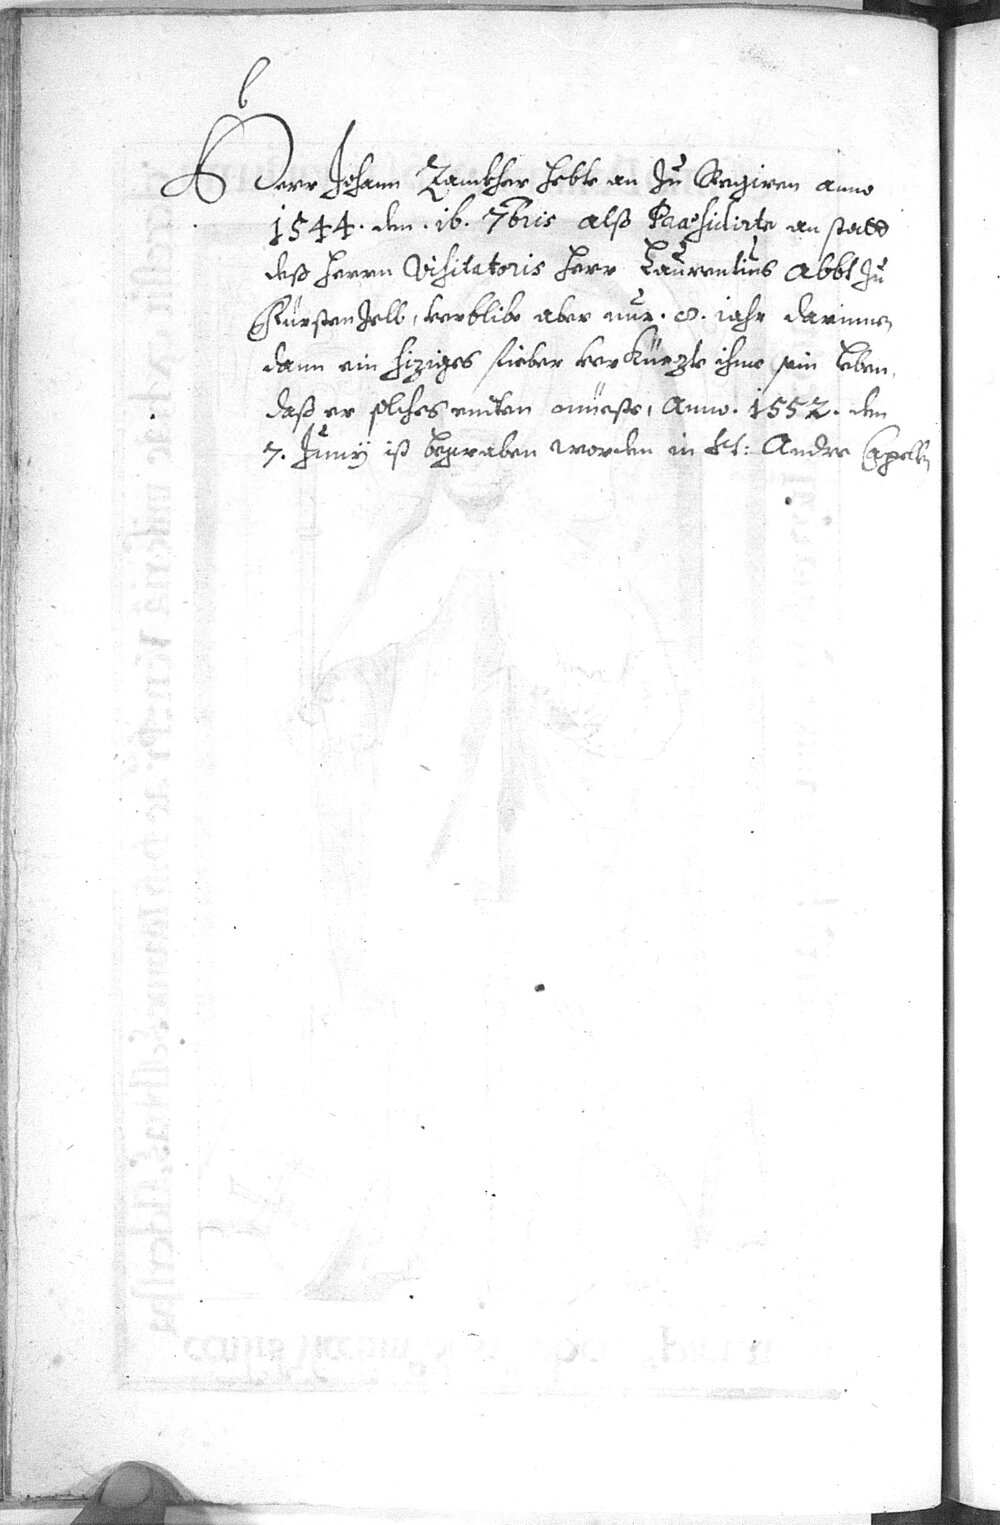 Herr Johann Zankher hebte an zu Regiren anno
1544. den. 16. 7bris alß Præsidirte an statt
deß Herrn Visitatoris Herr Laurentius Abbt zu
Fürstenzell, verblibe aber nur. 8. iahr darinnen
dann ein hiziges fieber verkürzte ihme sein leben,
daß er solches enden müeste, Anno. 1552. den
7. Junÿ ist begraben worden in St: Andre Capelln